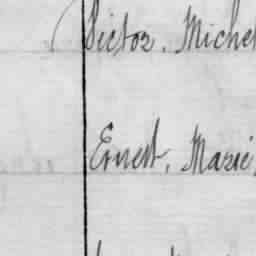 Victor, Michel
Ernest, Marie,